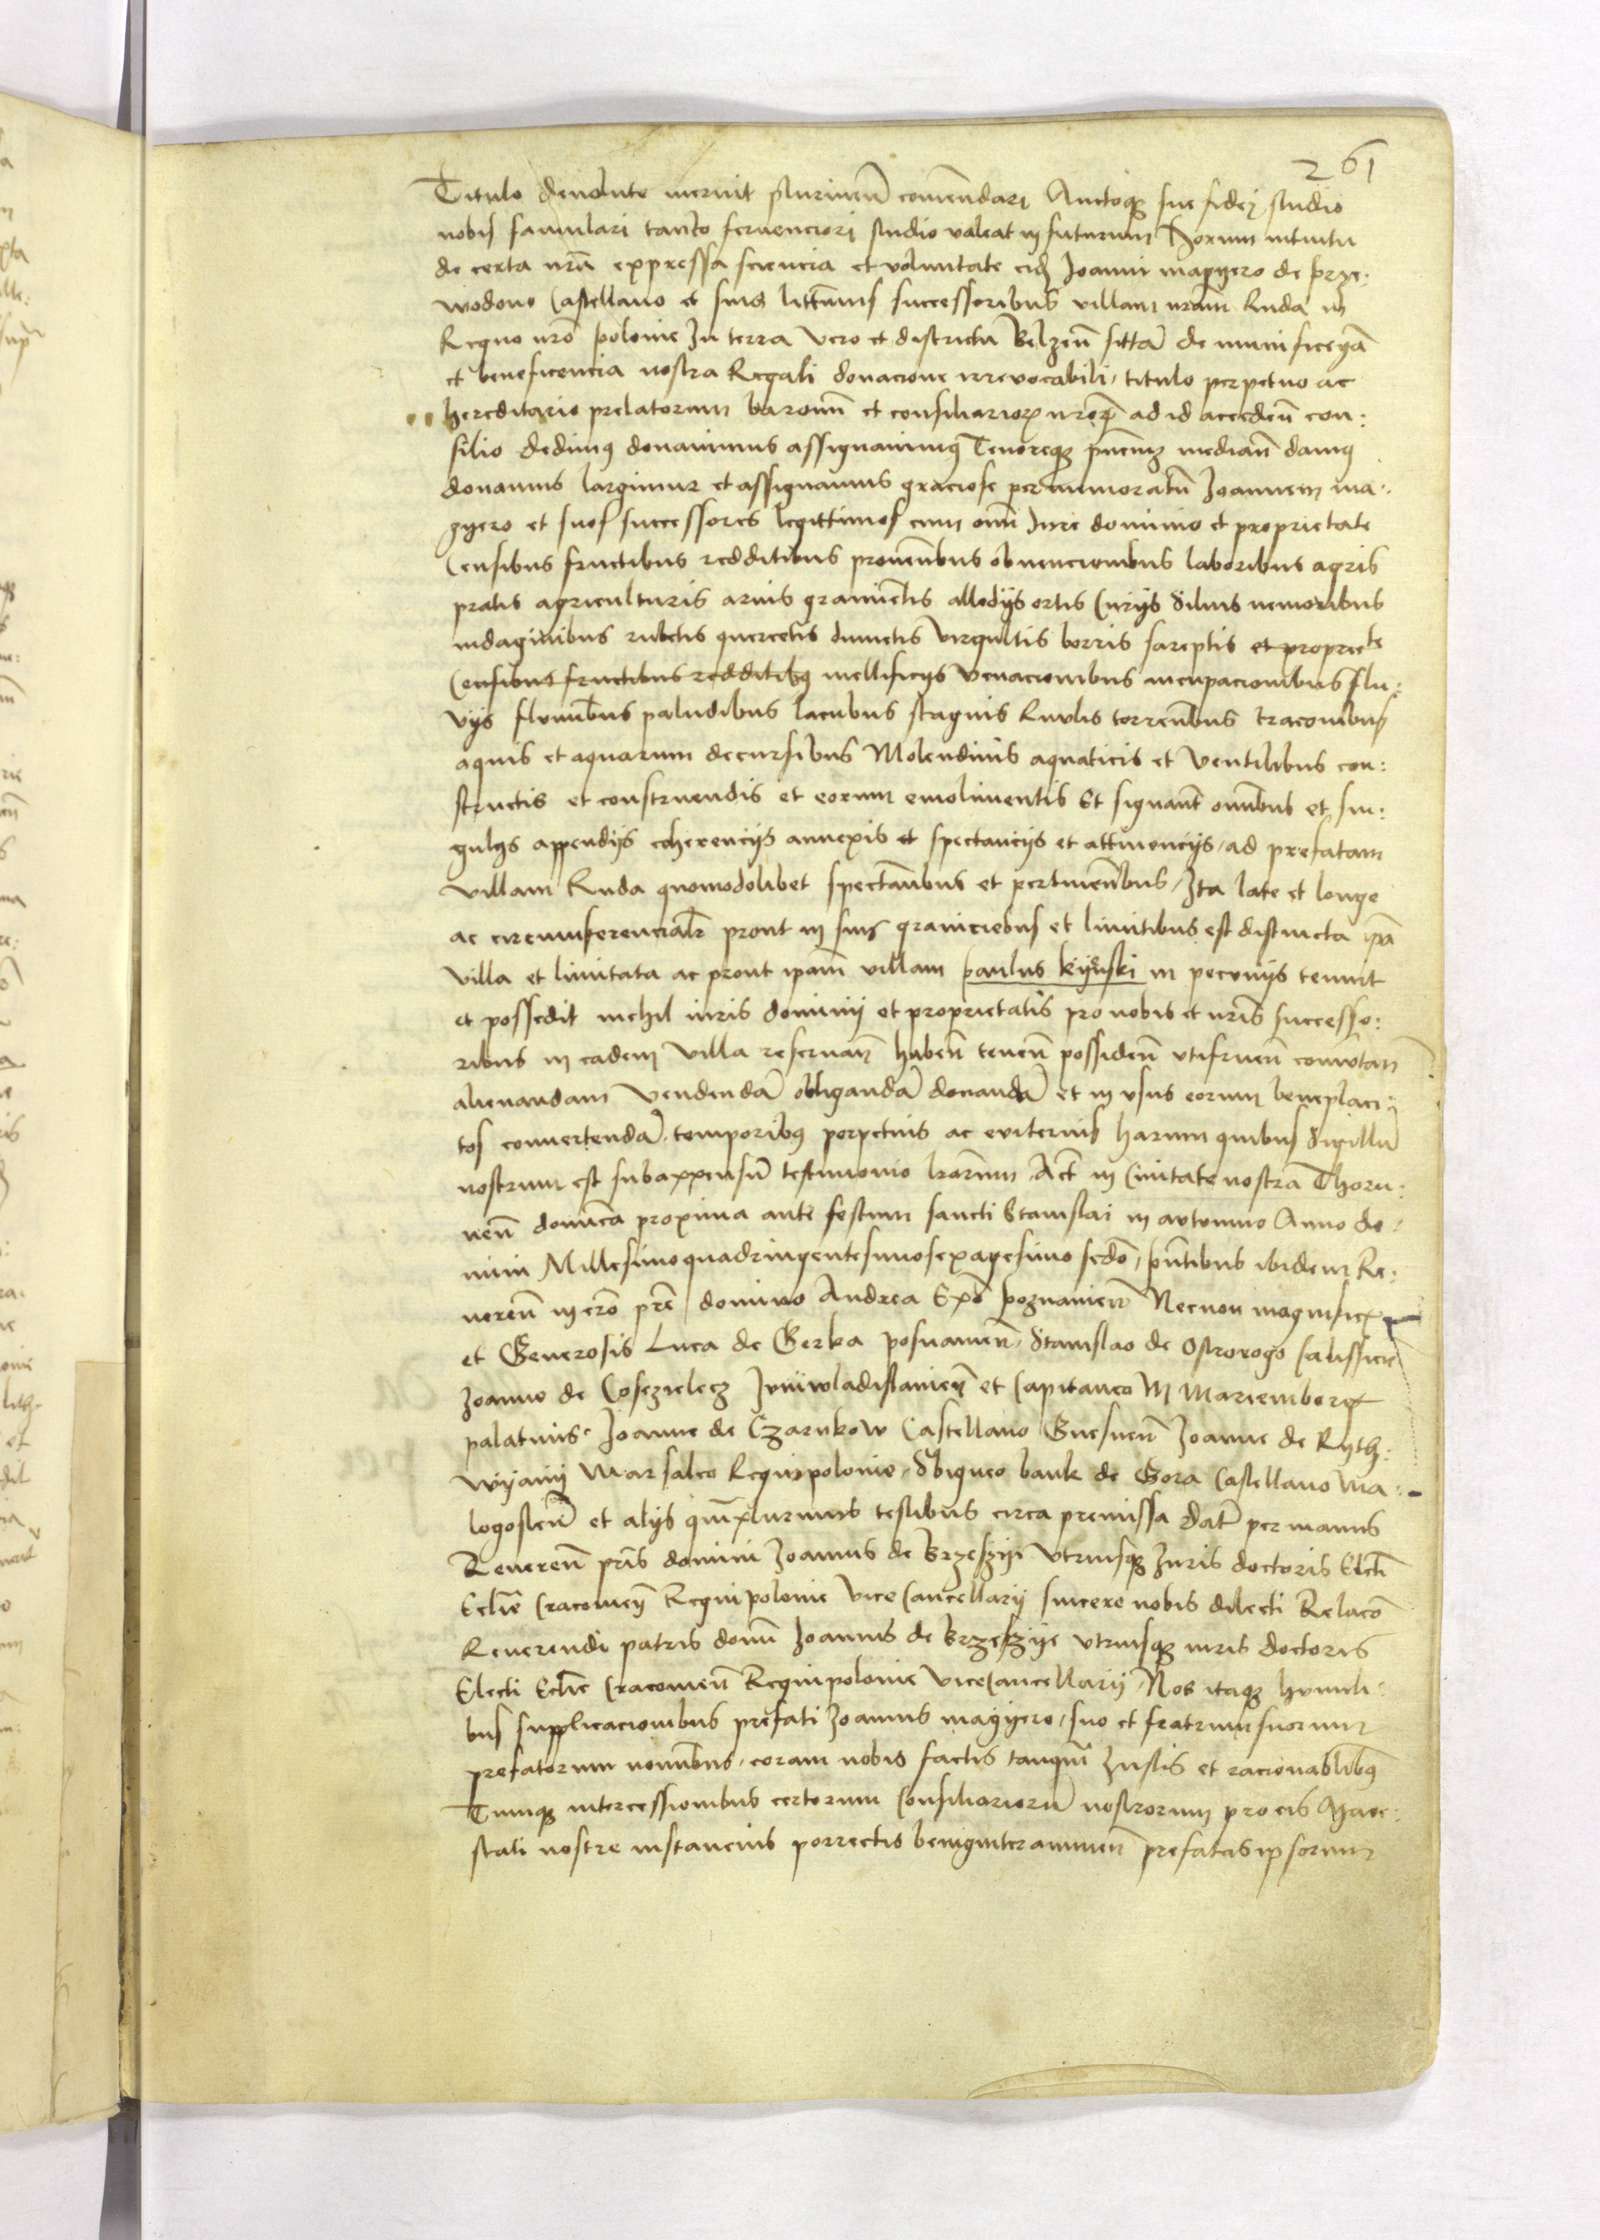 261
Titulo devolute meruit plurimum comendari Auctoqz sue fidej studio
nobis famulari tanto fervenciori studio valeat in futurum Horum intuitu
de certa nrã expressa sciencia et voluntate eidz Joanni magyero de prze:
wodowo Castellano et suis littimis successoribus villam nram Ruda in
Regno nrõ polonie In terra vero et districtu Belzeñ sittã de munificeñã
et beneficencia nostra Regali donacione irrevocabili, titulo perpetuo ac
hereditario prelatorum baronũ et consiliariorz nrõrz ad id accedeñ con:
silio dedimq donavimus assignavimq Tenoreqz pñtmz mediañ damq
donamus largimur et assignamus graciose per memoratũ Joannem ma:
gyero et suos successores legittimos cum omni Jure dominio et proprietate
Censibus fructibus redditibus provẽtibus obvencionibus laboribus agris
pratis agriculturis arvis gramietis allodijs ortis Curijs Silvis nemoribus
indaginibus rubetis quercetis dumetis virgultis borris sareptis et propriets
Censibus fructibus redditibq mellificijs venacionibus aucupacionibus flu:
vijs fluminibus paludibus lacubus stagnis Rivulis torrentibus traconibus
aquis et aquarum decursibus Molendinis aquaticis et Ventilibus con:
structis et construendis et eorum emolimentis Et signant omnibus et sin:
gulis appendijs coherencijs annexis et spectancijs et attinencijs, ad prefatam
villam Ruda quomodolibet spectantibus et pertinentibus, Ita late et longe
ac circumferencialr prout in suis graniciebus et limitibus est distincta ipã
villa et limitata ac prout ipam villam paulus kijenski in pecunijs tenuit
et possedit nichil iuris dominij et proprietatis pro nobis et nris successo:
ribus in eadem villa reservañ habeñ teneñ possideñ utifrueñ comutañ
alienandam vendendã obligandã donandã et in usus eorum beneplaci:
tos convertendã, temporibq perpetuis ac eviternis harum quibus Sigillũ
nostrum est subappensũ testimonio lrarum Act in Civitate nostra Thoru:
neñ dominca proxima ante festum sancti Stanislai in autumno Anno do:
mini Millesimoquadringentesimosexagesimo secdo, pñtibus ibidem Re:
vereñ in cro pre domino Andrea Epo poznanieñ Necnon magnificz
et Generosis Luca de Gorka posnanieñ, Stanislao de Ostrorogo Calissieñ
Joanne de Cosczielecz Juniwladislavieñ et Capitaneo in Mariemborg
palatinis, Joanne de Czarnkow Castellano Gnesneñ Joanne de Ryth:
wijanij Marsalco Regni polonie, Sbigneo bank de Gora Castellano ma:
logosteñ et alijs qmplurimis testibus circa premissa dat per manus
Revereñ pris domini Joannis de Brzeszije utriusqz Juris doctoris Elcti
Eclie Cracovieñ Regni polonie Vice Cancellarij sincere nobis dilecti Relaco
Reverendi patris domi Joannis de Brzeszije utriusqz iuris doctoris
Electi Eclie Cracovieñ Regni polonie ViceCancellarij, Nos itaqz humili:
bus supplicacionibus prefati Joannis magijero, suo et fratrum suorum
prefatorum nominibus, coram nobis factis tanquam Justis et racionabilibq
Tumqz intercessionibus certorum Consiliariorũ nostrorum pro eis Maie:
stati nostre instancius porrectis benigniter annueñ prefatas ipsorum